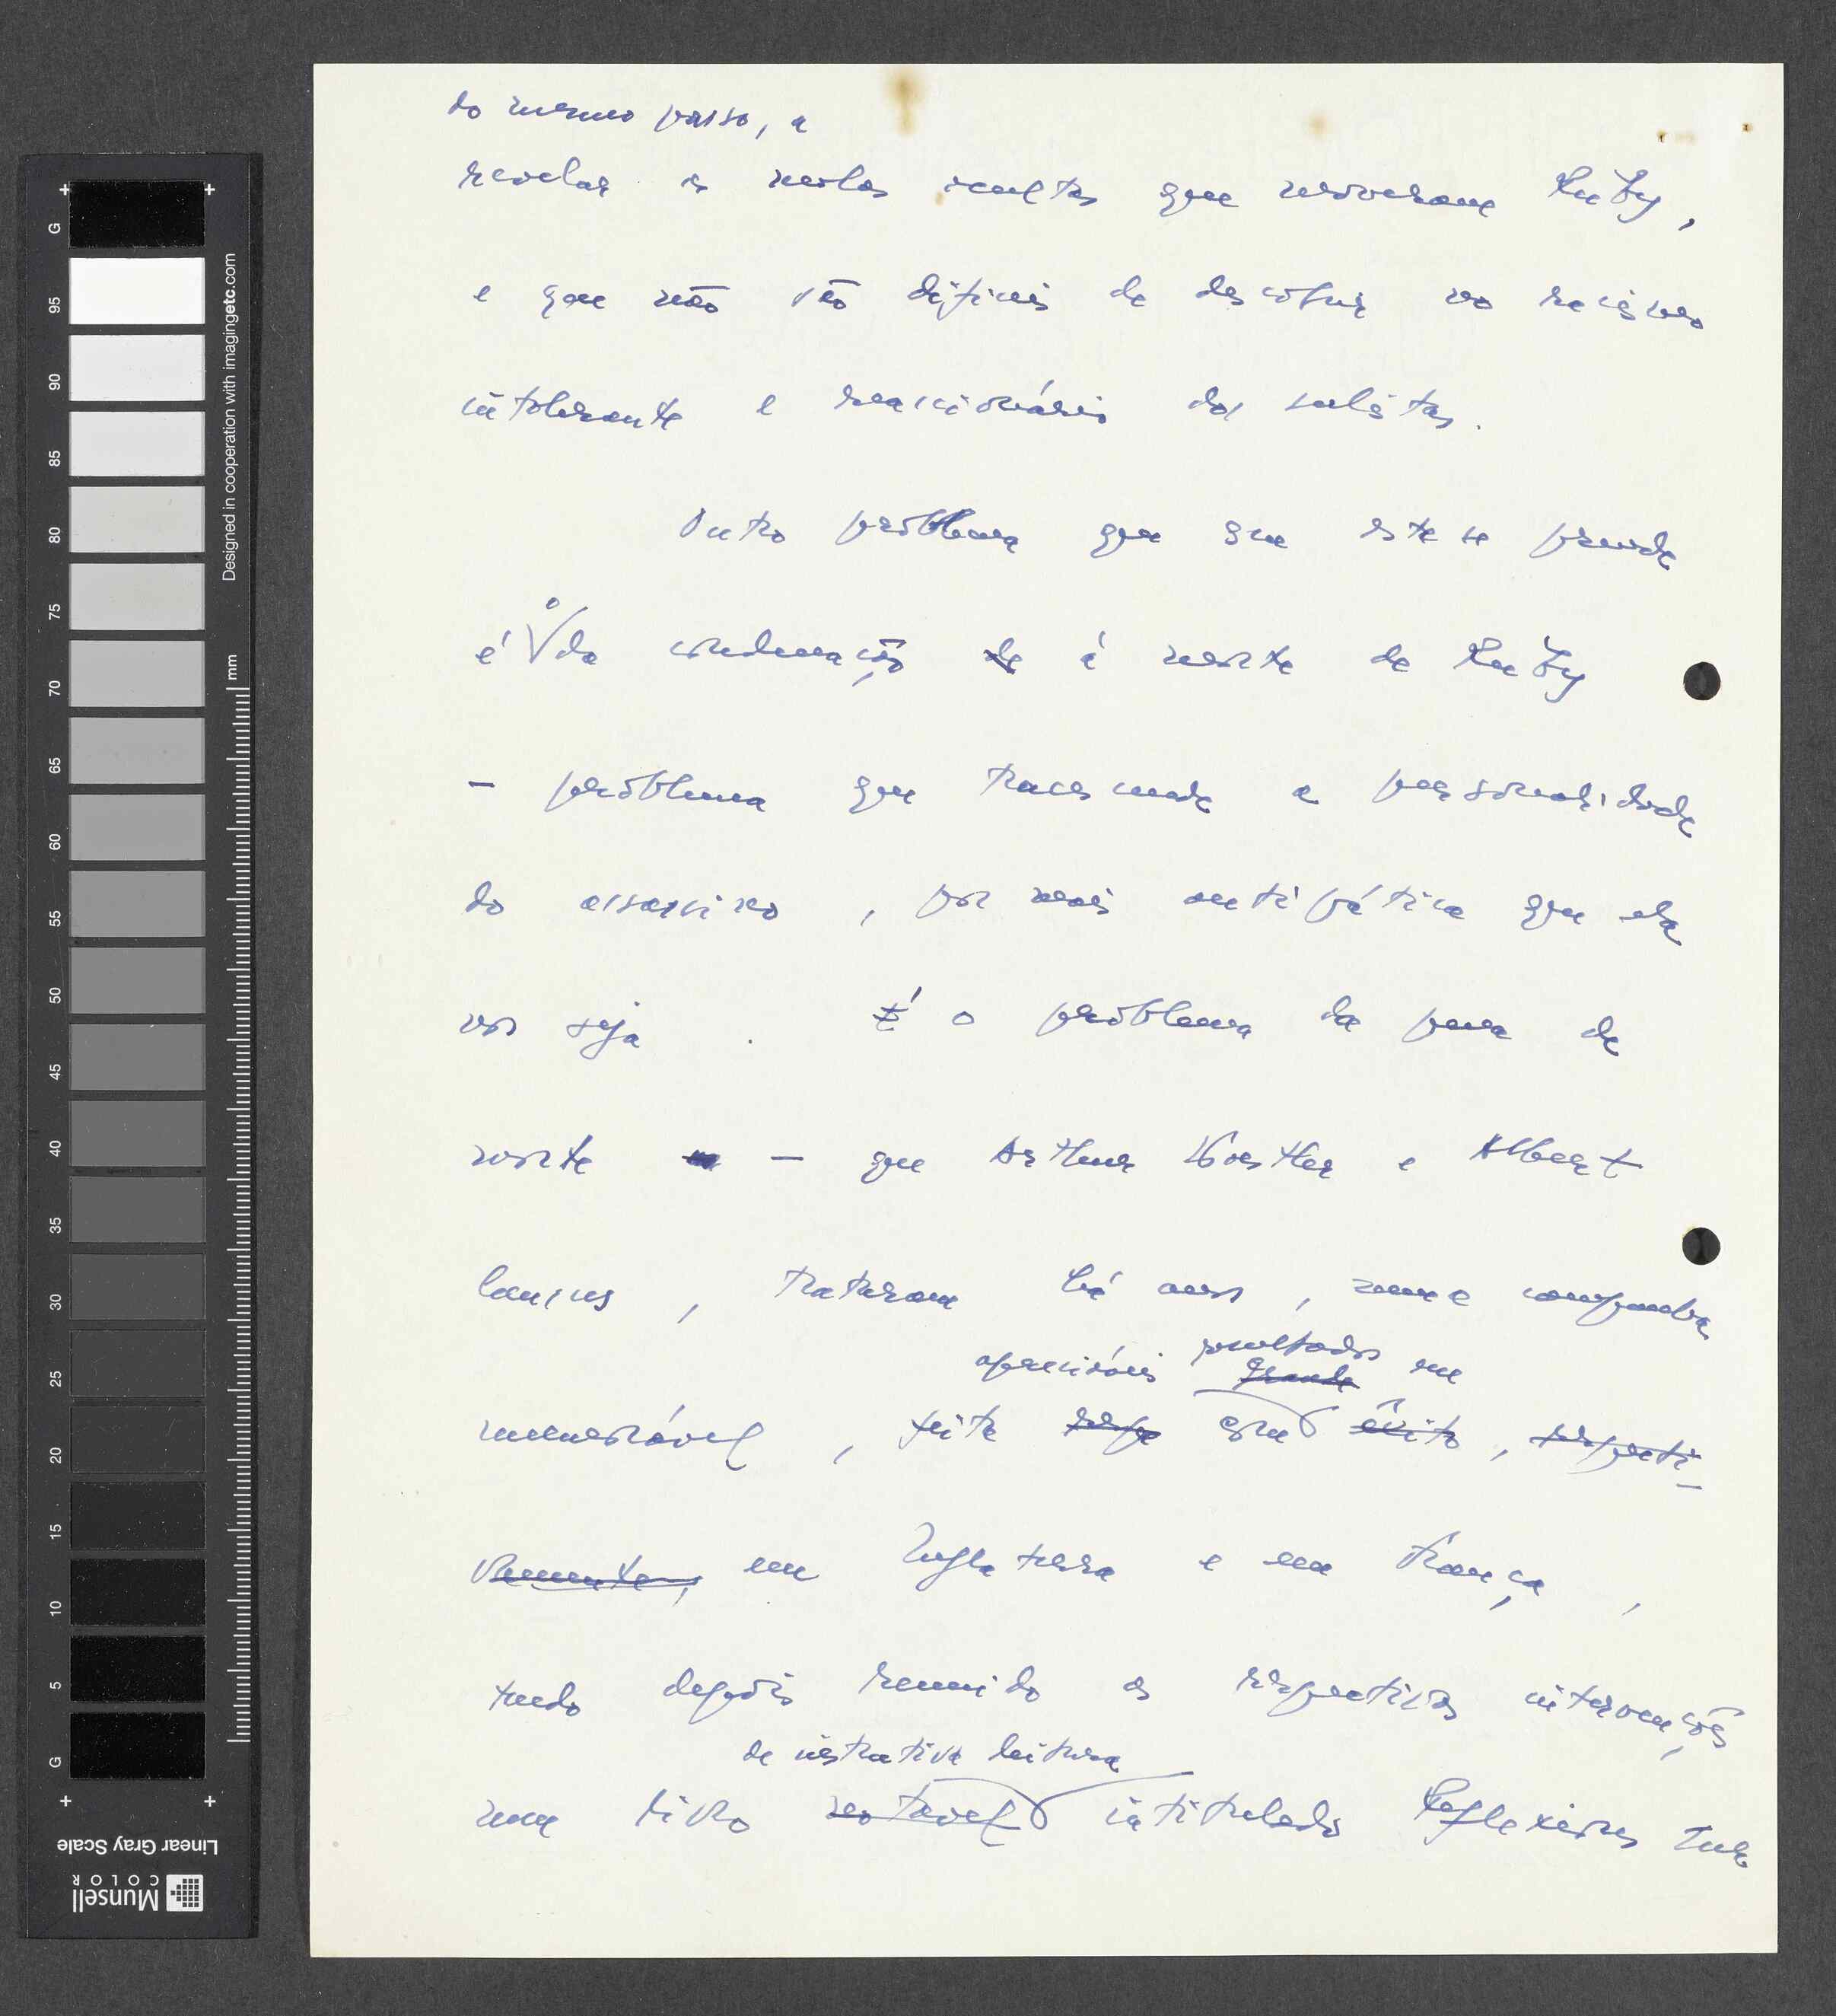 do mesmo passo, a
revelar as molas ocultas que moveram Ruby,
e que não são difíceis de descobrir no racismo
intolerante e reaccionário dos sulistas.
Outro problema que a este se prende
é o da condenação de à morte de Ruby
– problema que transcende a personalidade
do assassino, por mais antipática que ela
nos seja. É o problema da pena de
morte – que Arthur Koestler e Albert
Camus, trataram há anos, numa campanha
apreciáveis resultados em
grande
memorável, feita com êxito, respecti-
vamente, em Inglaterra e em França,
tendo depois reunido as respectivas intervenções
de instrutiva leitura
num livro notável intitulado Reflexions sur
G 95 90 85 80 75 70 65 60 55 50 45 40 35 30 25 20 15 10 5 G
mm
Designed in cooperation with imagingetc.com
Linear Gray Scale
Munsell
COLOR